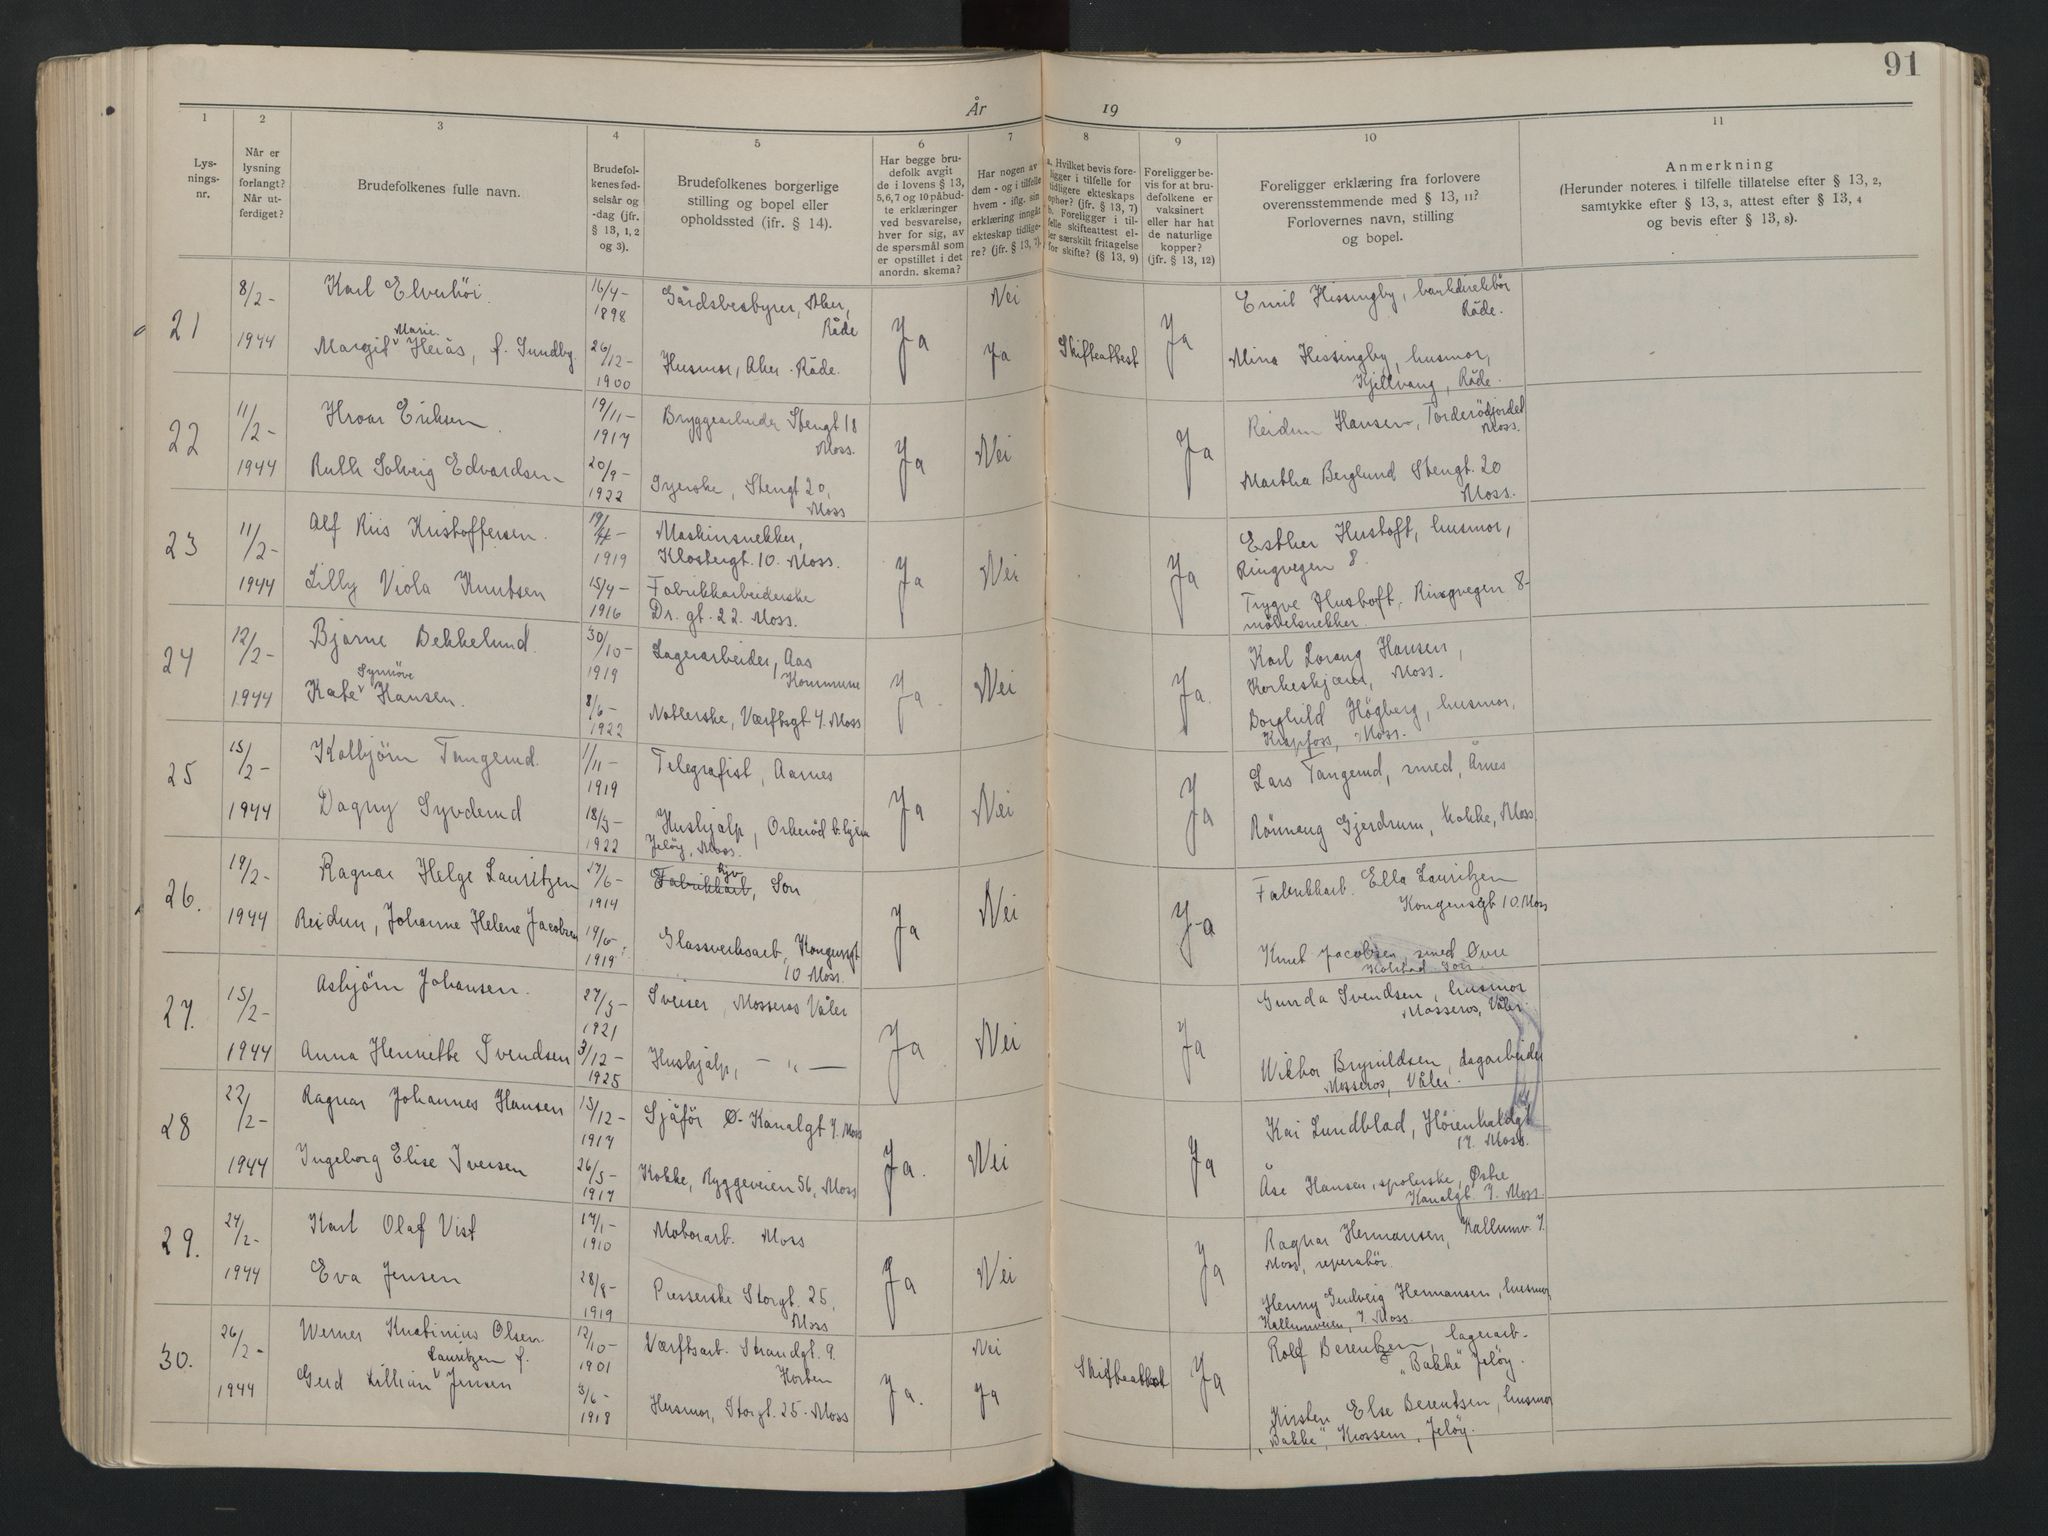 91
År 19
1 2 3 4 5 6 7 8 9 10 11
Lysningsnr.
Når er lysning forlangt? Når utferdiget?
Brudefolkenes fulle navn.
Brudefolkenes fødselsår og -dag (jfr. § 13, 1, 2 og 3).
Brudefolkenes borgerlige stilling og bopel eller opholdssted (jfr. § 14).
Har begge brudefolk avgit de i lovens § 13, 5, 6, 7 og 10 påbudte erklæringer ved besvarelse, hver for sig, av de spørsmål som er opstillet i det anordn. skema?
Har nogen av dem - og i tilfelle hvem - iflg. sin erklæring inngått ekteskap tidligere? (jfr. § 13, 7).
a. Hvilket bevis foreligger i tilfelle for tidligere ekteskaps ophør? (jfr. § 13, 7)
b. Foreligger i tilfelle skifteattest eller særskilt fritagelse for skifte? (§ 13, 9)
Foreligger bevis for at brudefolkene er vaksinert eller har hat de naturlige kopper? (jfr. § 13, 12)
Foreligger erklæring fra forlovere overensstemmende med § 13, 11? Forlovernes navn, stilling og bopel.
Anmerkning
(Herunder noteres i tilfelle tillatelse efter § 13, 2, samtykke efter § 13, 3, attest efter § 13, 4 og bevis efter § 13, 8).
21 8/2- Karl Elverhöi. 16/4- 1898 Gårdsbestyrer, Aker, Råde Ja Nei Ja Emil Hissingby, Råde.
1944 Margit Marie Heiås, f. Sundby 26/12- 1900 Husmor, Aker. Råde. Ja Skifteattest Mina Hissingby, husmor, Kjellvang, Råde.
22 11/2- Hroar Eriksen. 19/11- 1917 Bryggearbeider Stengt 18 Moss. Ja Nei Ja Reidun Hansen, Torderödjordet Moss.
1944 Ruth Solveig Edvardsen 20/9- 1922 Syerske, Stengt 20, Moss Martha Berglund Stengt. 20 Moss.
23 11/2- Alf Riis Kristoffersen. 1919 Maskinsnekker, Klostergt. 10. Moss. Ja Nei Ja Esther Hustoft, husmor, Ringvegen 8.
1944 Lilly Viola Knutsen 15/4- 1916 Fabrikkarbeiderske Dr. gt. 22. Moss. Trygve Hustoft, Ringvegen 8- möbelsnekker.
24 12/2- Bjarne Bekkelund. 30/10- 1919 Lagerarbeider, Aas Kommune Ja. Nei Ja. Karl Lorang Hansen, Korkeskjærer, Moss.
1944 Kate Synnöve Hansen. 8/6- 1922 Notterske, Værftsgt 7. Moss Borghild Högberg, husmor, Krapfoss, Moss.
25 15/2- Kolbjörn Tangerud. 1/11- 1919 Telegrafist, Aarnes Ja Nei Ja Lars Tangerud, smed, Årnes
1944 Dagny Syvderud 18/3- 1922 Hushjalp, Orkeröd b.hjem Jelöy, Moss. Rönnaug Gjerdrum, kokke, Moss
26. 19/2- Ragnar Helge Lauritzen 27/6- 1914 Fabrikkarb, Son Ja Nei Ja Fabrikkarb. Ella Lauritzen Kongensgt 10. Moss
1944 Reidun, Johanne Helene Jacobsen 19/6- 1919 Glassverksarb, Kongensgt 10 Moss. Knut Jacobsen, smed Øvre Kolstad Son
27. 15/2- Asbjörn Johansen. 27/3- 1921 Sveiser, Mosseros Våler Ja Nei Ja Gunda Svendsen, husmor Mosseros, Våler.
1944 Anna Henriette Svendsen 3/12- 1925 Hushjalp, - " - Wiktor Brynildsen, dagarbeider Mosseros, Våler.
28 22/2- Ragnar Johannes Hansen 15/12- 1917 Sjåför Ø- Kanalgt 7. Moss Ja. Nei Ja Kai Lundblad, Höienhaldgt 17. Moss.
1944 Ingeborg Elise Iversen 26/5- 1917 Kokke, Ryggeveien 56, Moss Åse Hansen, spolerske, Østre Kanalgt. 7. Moss.
29. 24/2- Karl Olaf Vist 17/1- 1910 Motorarb. Moss Ja Nei Ja Ragnar Hermansen, Kallumv. 7. Moss, reperatör.
1944 Eva Jensen 28/8- 1919 Presserske Storgt. 25, Moss Henny Gudveig Hermansen, husmor Kallumveien, 7. Moss.
30. 26/2- Werner Olsen 12/10- 1901 Værftsarb. Strandgt. 9. Horten Ja. Nei Ja Rolf Berentzen, lagerarb. "Bakke" Jelöy.
1944 Gerd Lillian Lauritzen f. Jensen 3/6- 1918 Husmor, Storgt. 25. Moss Ja Skifteattest Kirsten Else Berentsen, husmor "Bakke", Krossern, Jelöy.